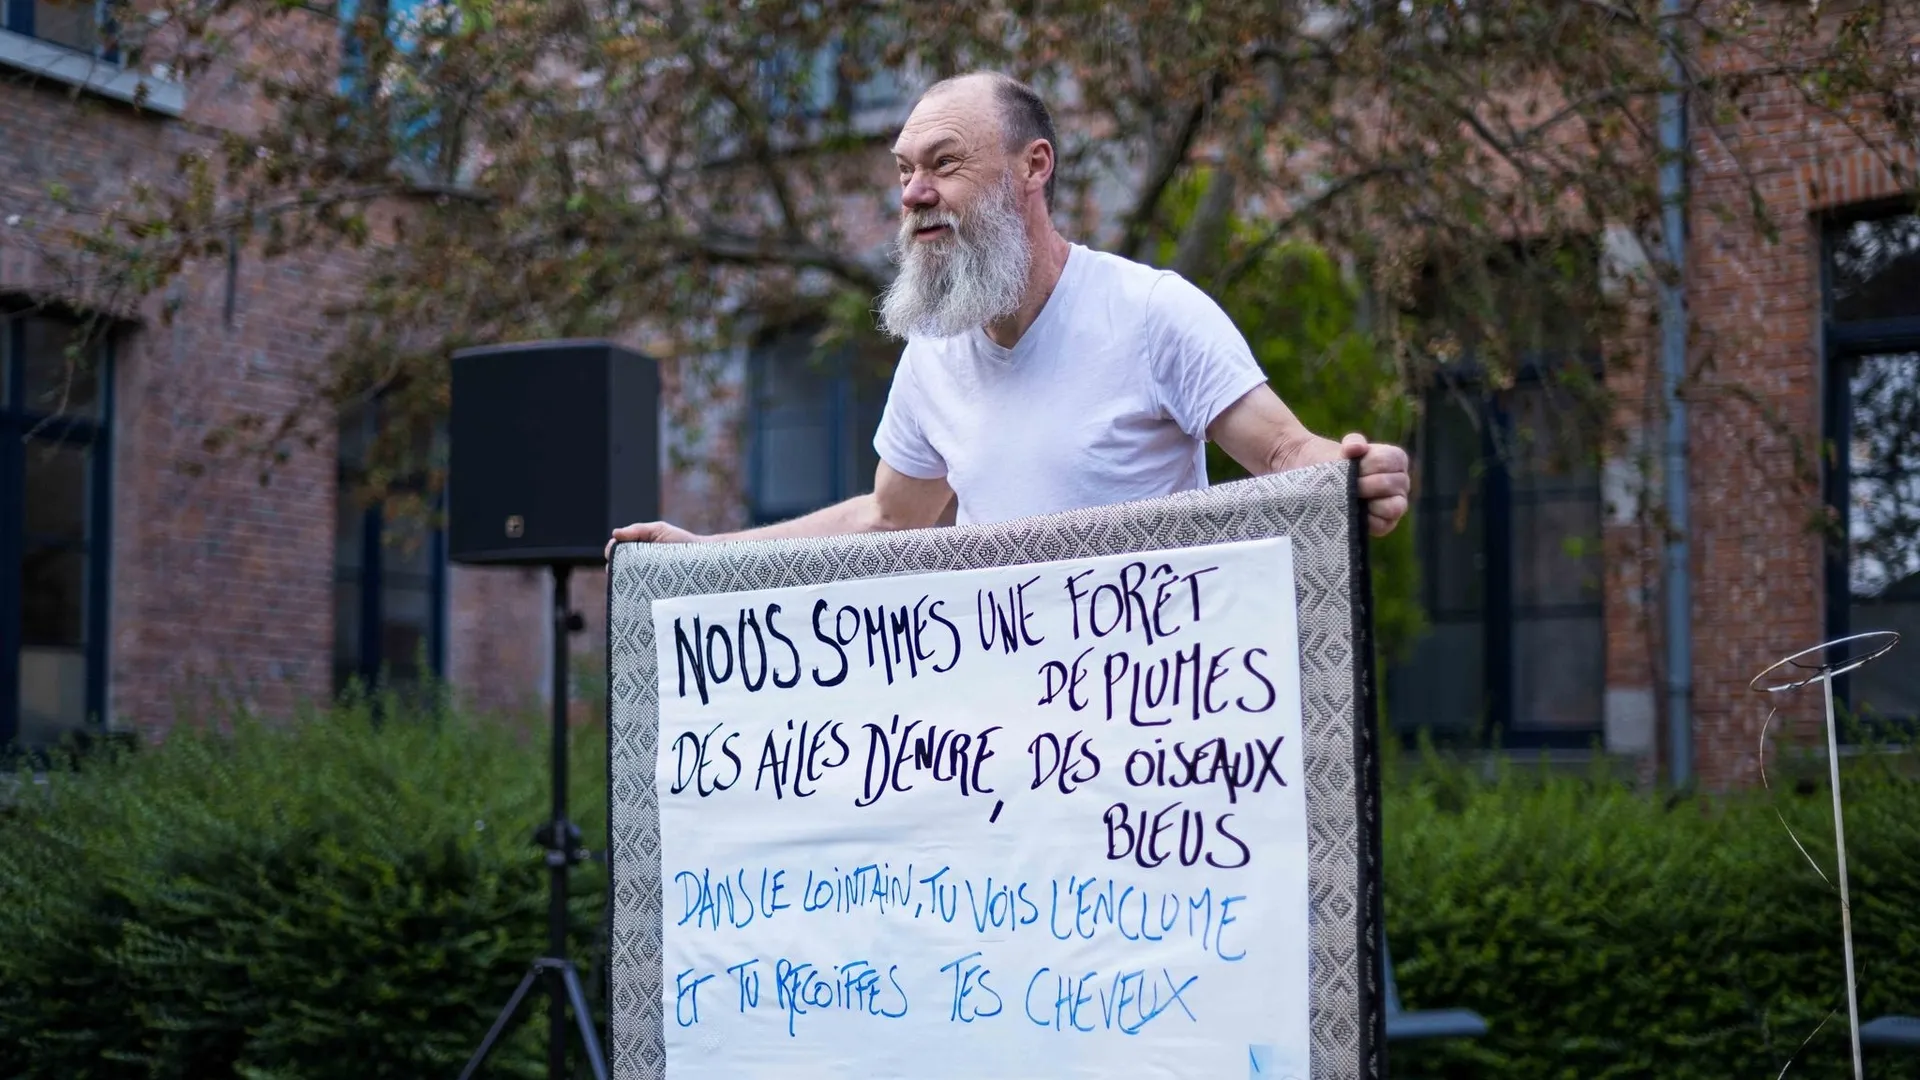 NOUS SOMMES UNE FORÊT
DE PLUMES
DES AILES D'ENCRE, DES OISEAUX
BLEUS
DANS LE LOINTAIN, TU VOIS L'ENCLUME
ET TU RECOIFFES TES CHEVEUX